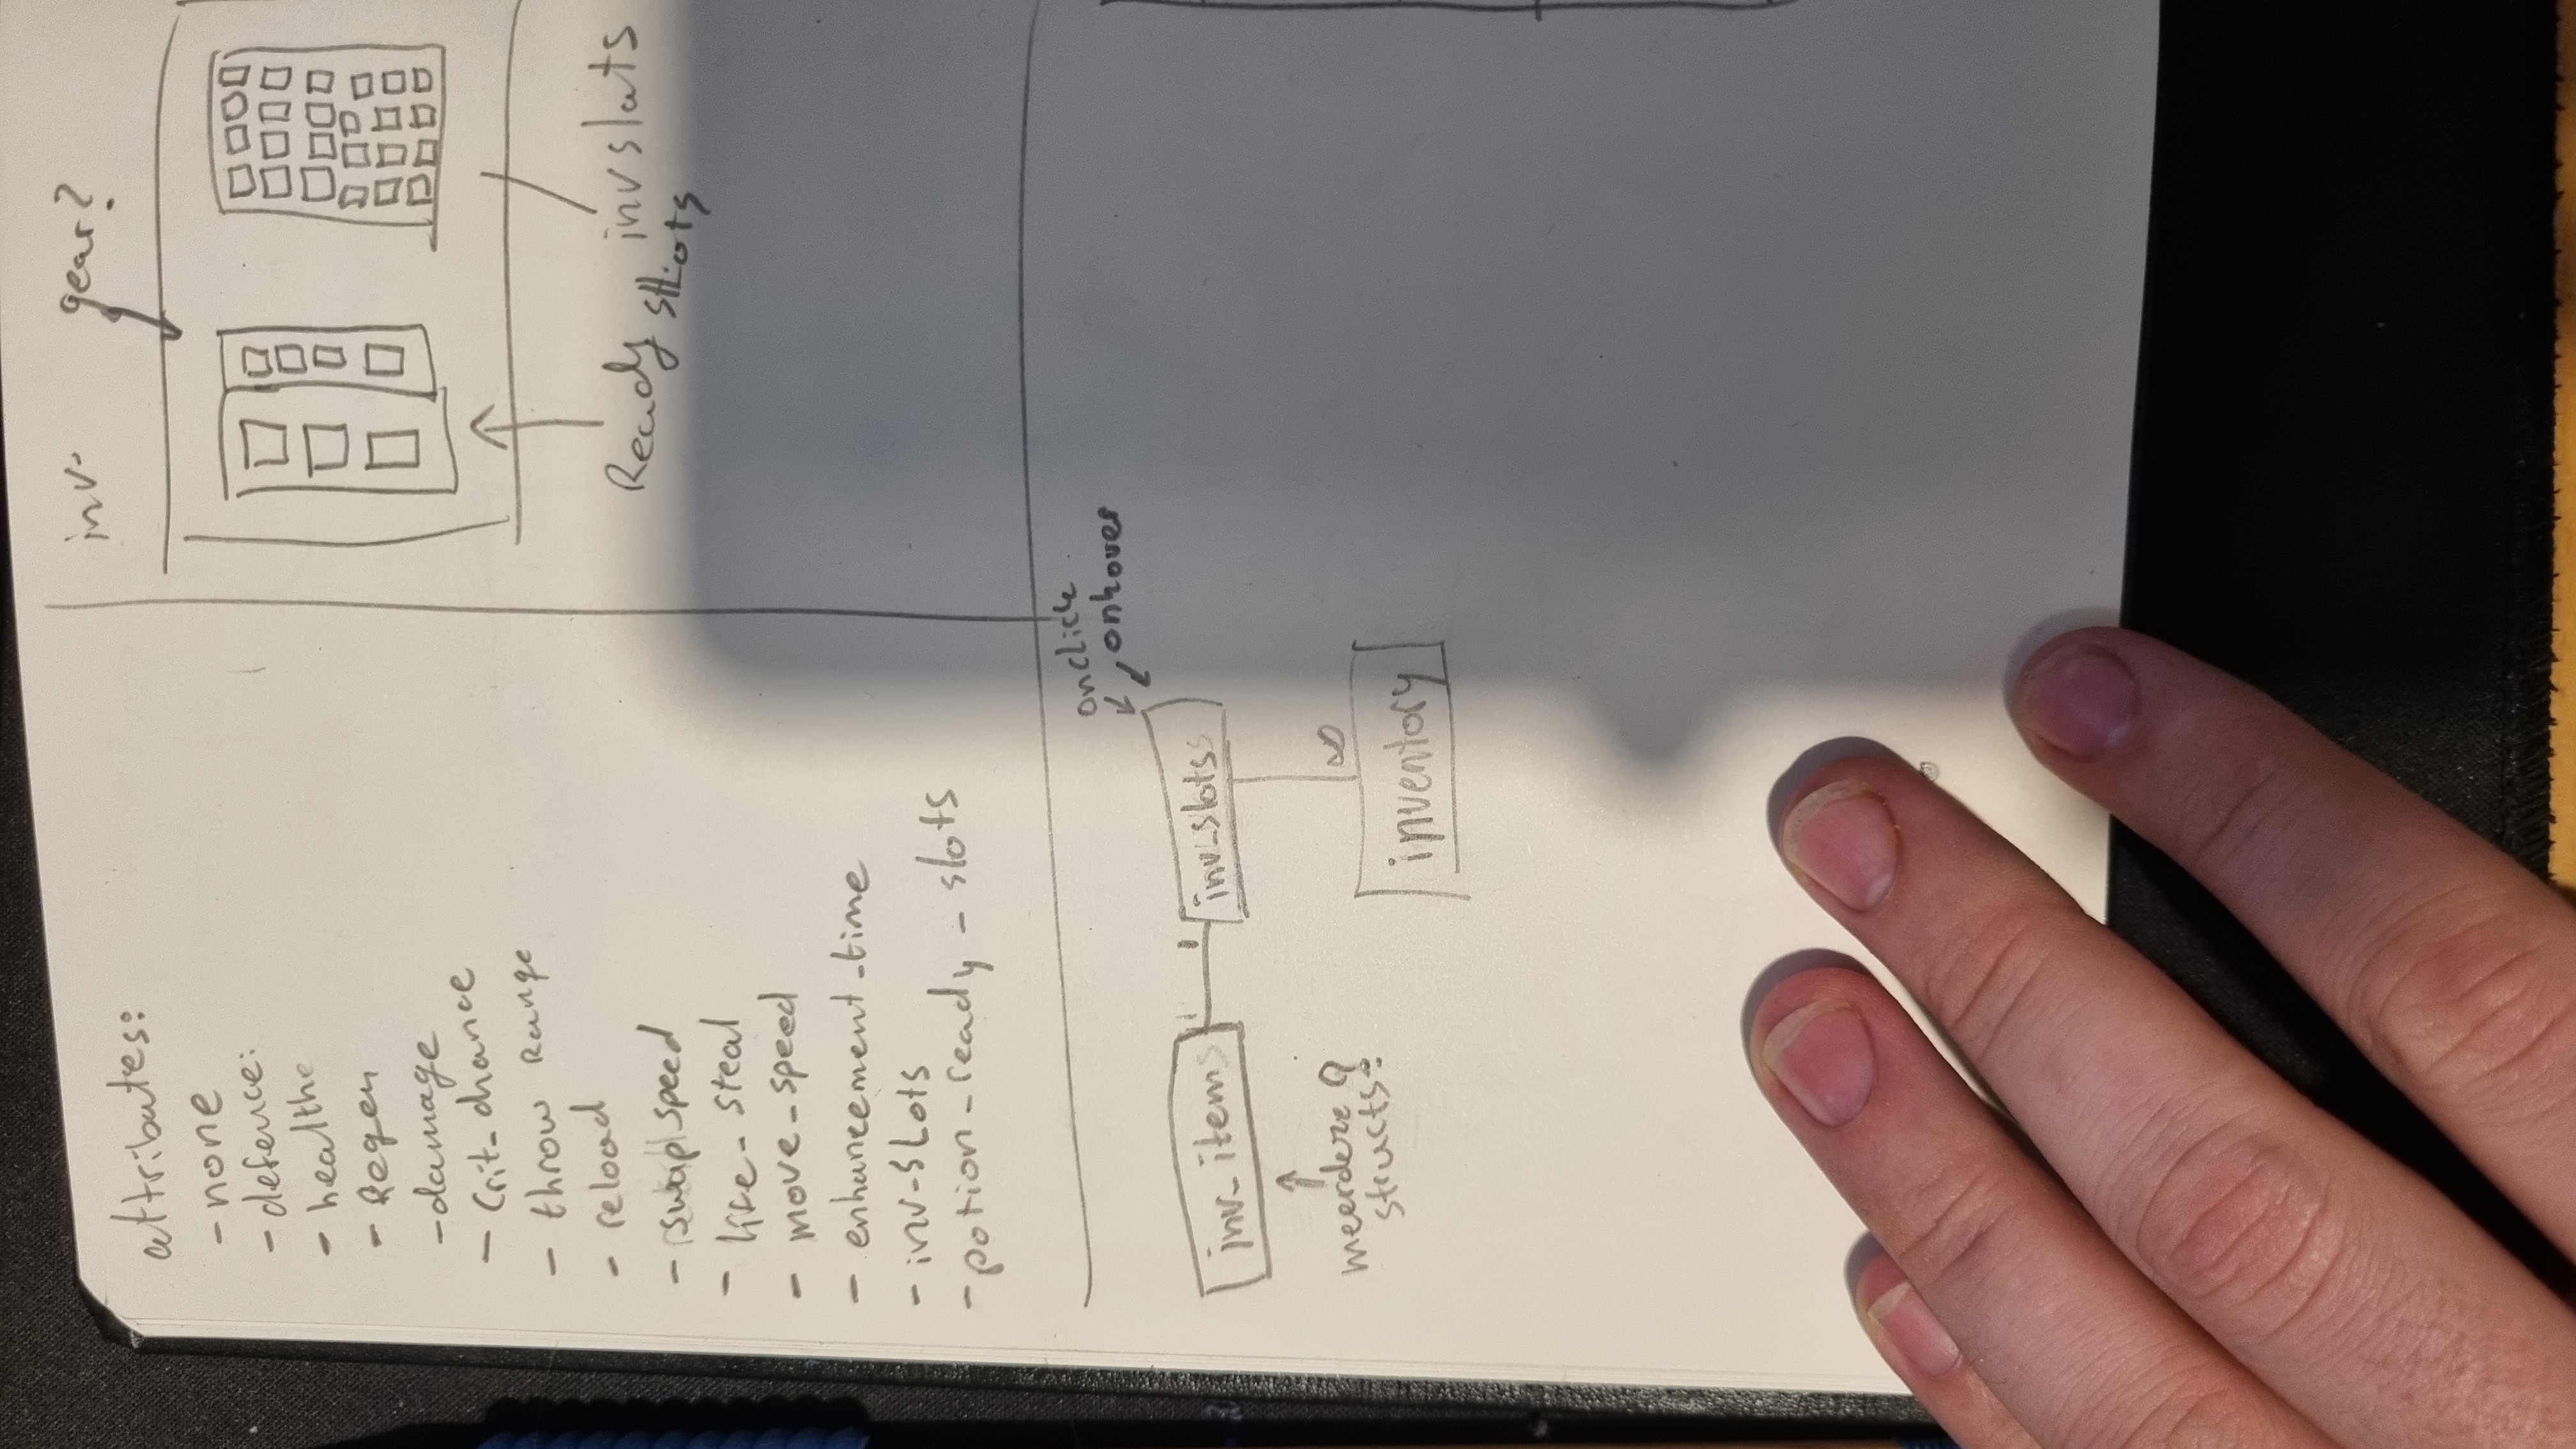 attributes:
- none
- defence:
- healthe
- Regen
- damage
- Crit_chance
- throw Range
- reload
- swap speed
- life_steal
- move_speed
- enhancement_time
- inv-SLots
- potion_ready_slots
inv-
gear?
Ready slots
inv slots
onclick
onhover
inv_items
1 1
inv_slots
meerdere
structs?
∞
inventory